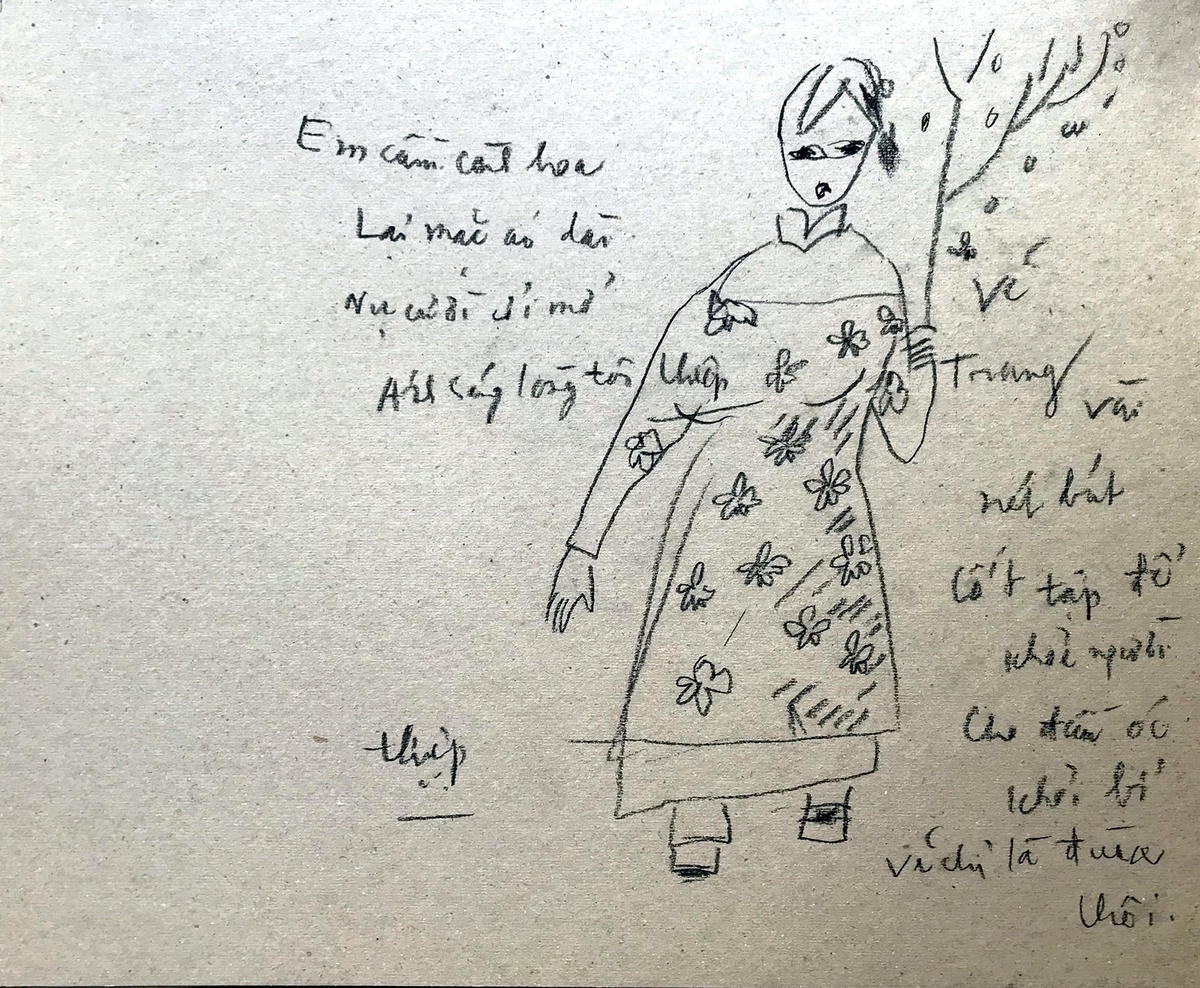 Em cầm cành hoa
Lại mặc áo dài
Nụ cười cởi mở
Ánh sáng lòng tôi
thiệp
Vẽ
Trang
vài
nét bút
Cốt tập để
khỏi người
Cho đầu óc
khỏi bị
Vẽ chỉ là được
thôi.
thiệp